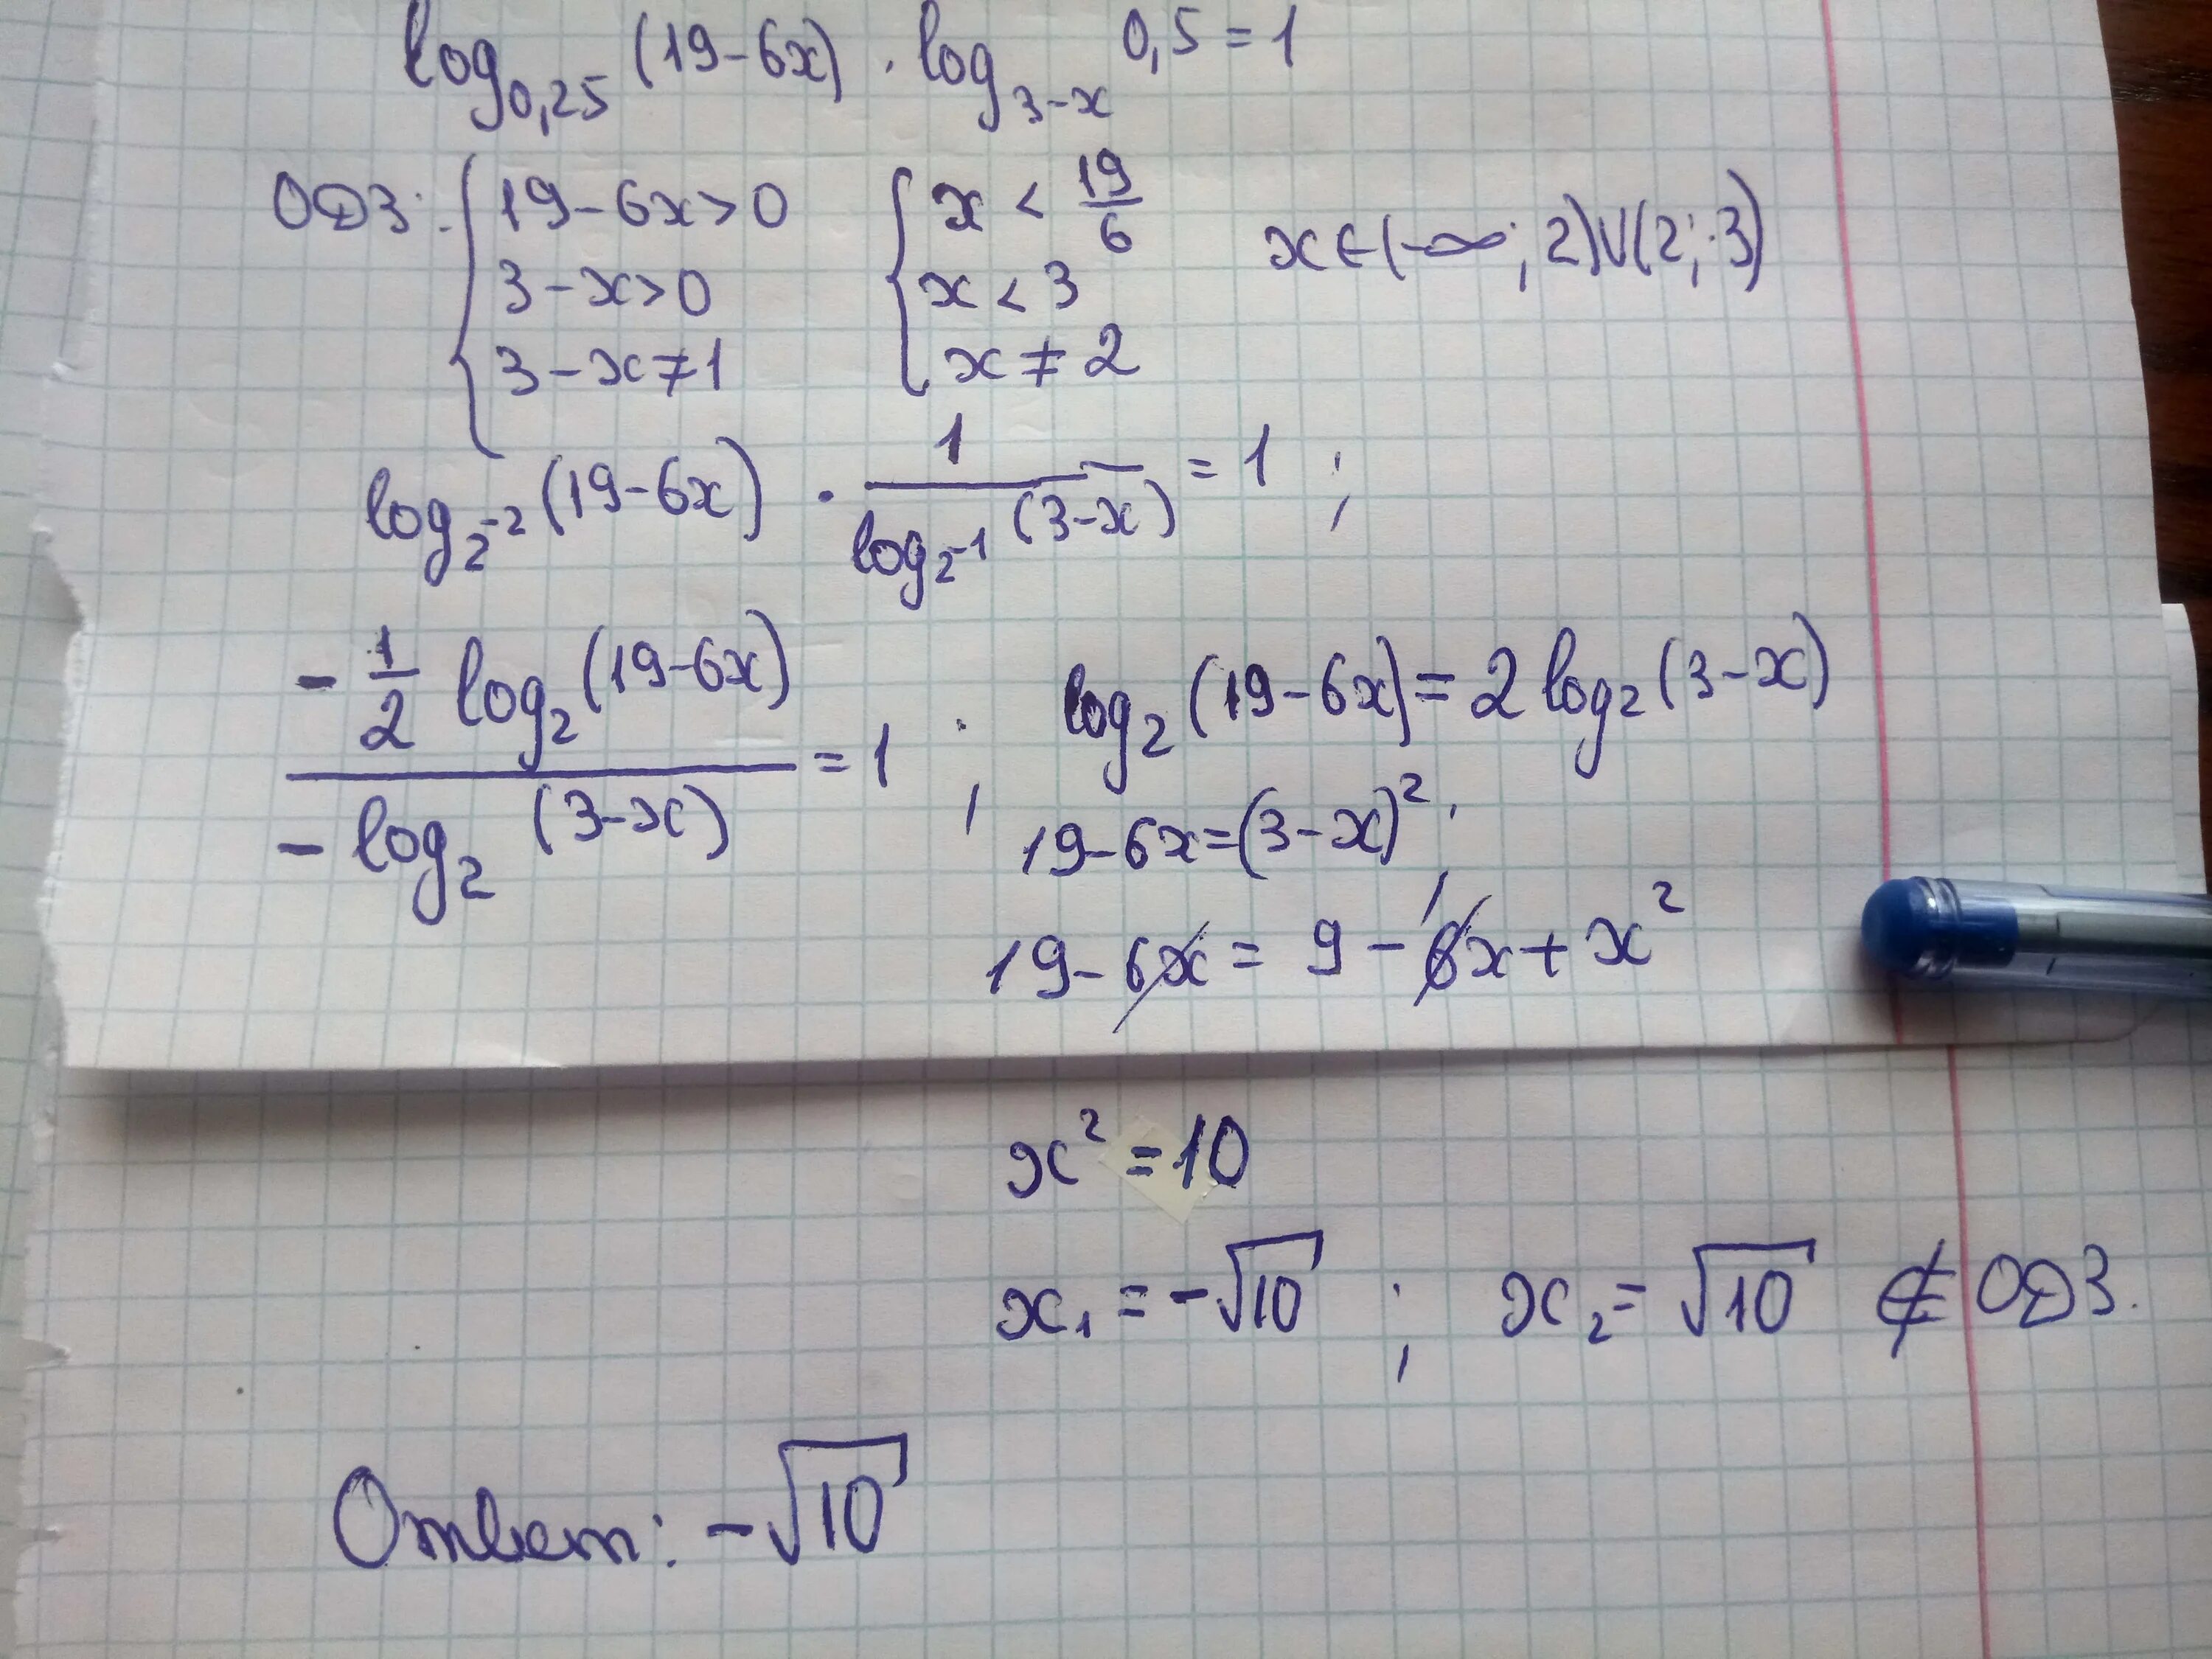 log₀,₂₅ (19-6x) · log₃₋ₓ 0,5 = 1
ОДЗ: { 19-6x>0 { x < 19/6 x∈(-∞; 2)∪(2; 3)
3-x>0 x < 3
3-x≠1 x ≠ 2
log_{2^{-2}} (19-6x) · 1/(log_{2^{-1}} (3-x)) = 1 ;
(-1/2 log₂ (19-6x))/(-log₂ (3-x)) = 1 ; log₂ (19-6x) = 2 log₂ (3-x)
19-6x=(3-x)² ;
19-6x = 9-6x+x²
x² = 10
x₁ = -√10 ; x₂ = √10 ∉ ОДЗ.
Ответ: -√10